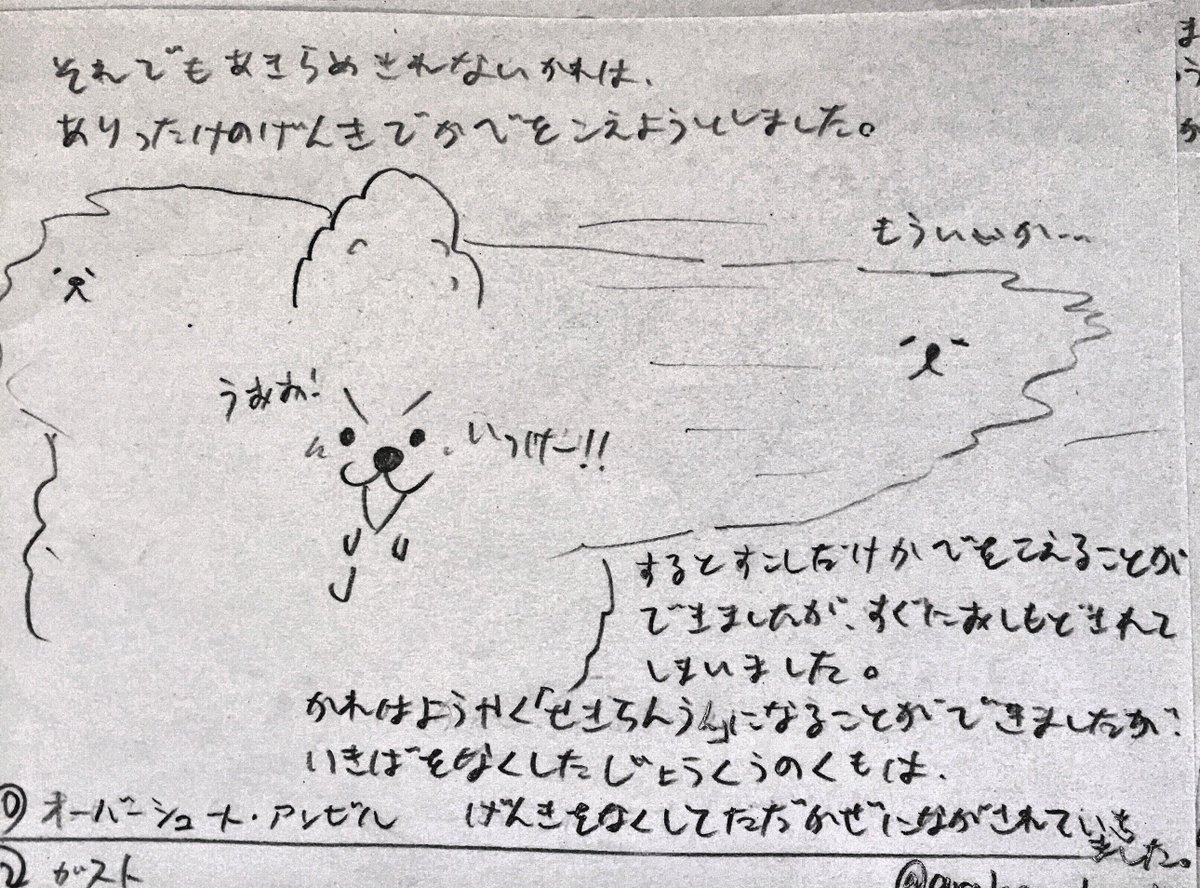 それでもあきらめきれないかれは、
ありったけのげんきでかべをこえようとしました。
もういいか…
うおお!
いっけー!!
するとすこしだけかべをこえることが
できましたが、すぐにおしもどされて
しまいました。
かれはようやく「せきらんうん」になることができましたが、
いきばをなくしたじょうくうのくもは、
げんきをなくしてただかぜにながされていき
ました。
オーバーシュート・アンビル
② ガスト
ま
う
か